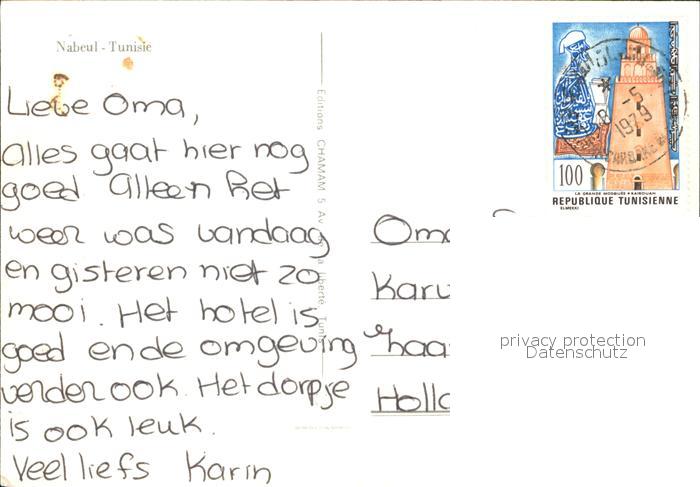 Nabeul - Tunisie
Lieve Oma,
Alles gaat hier nog
goed Alleen het
weer was vandaag
en gisteren niet zo
mooi. Het hotel is
goed en de omgeving
verder ook. Het dorpje
is ook leuk.
Veel liefs Karin
Editions CHAMAM 5 Av la liberté, Tunis
100
LA GRANDE MOSQUÉE • KAIROUAN
REPUBLIQUE TUNISIENNE
ELMEKKI
8 -5
1979
Oma
Karu
Holla
privacy protection
Datenschutz